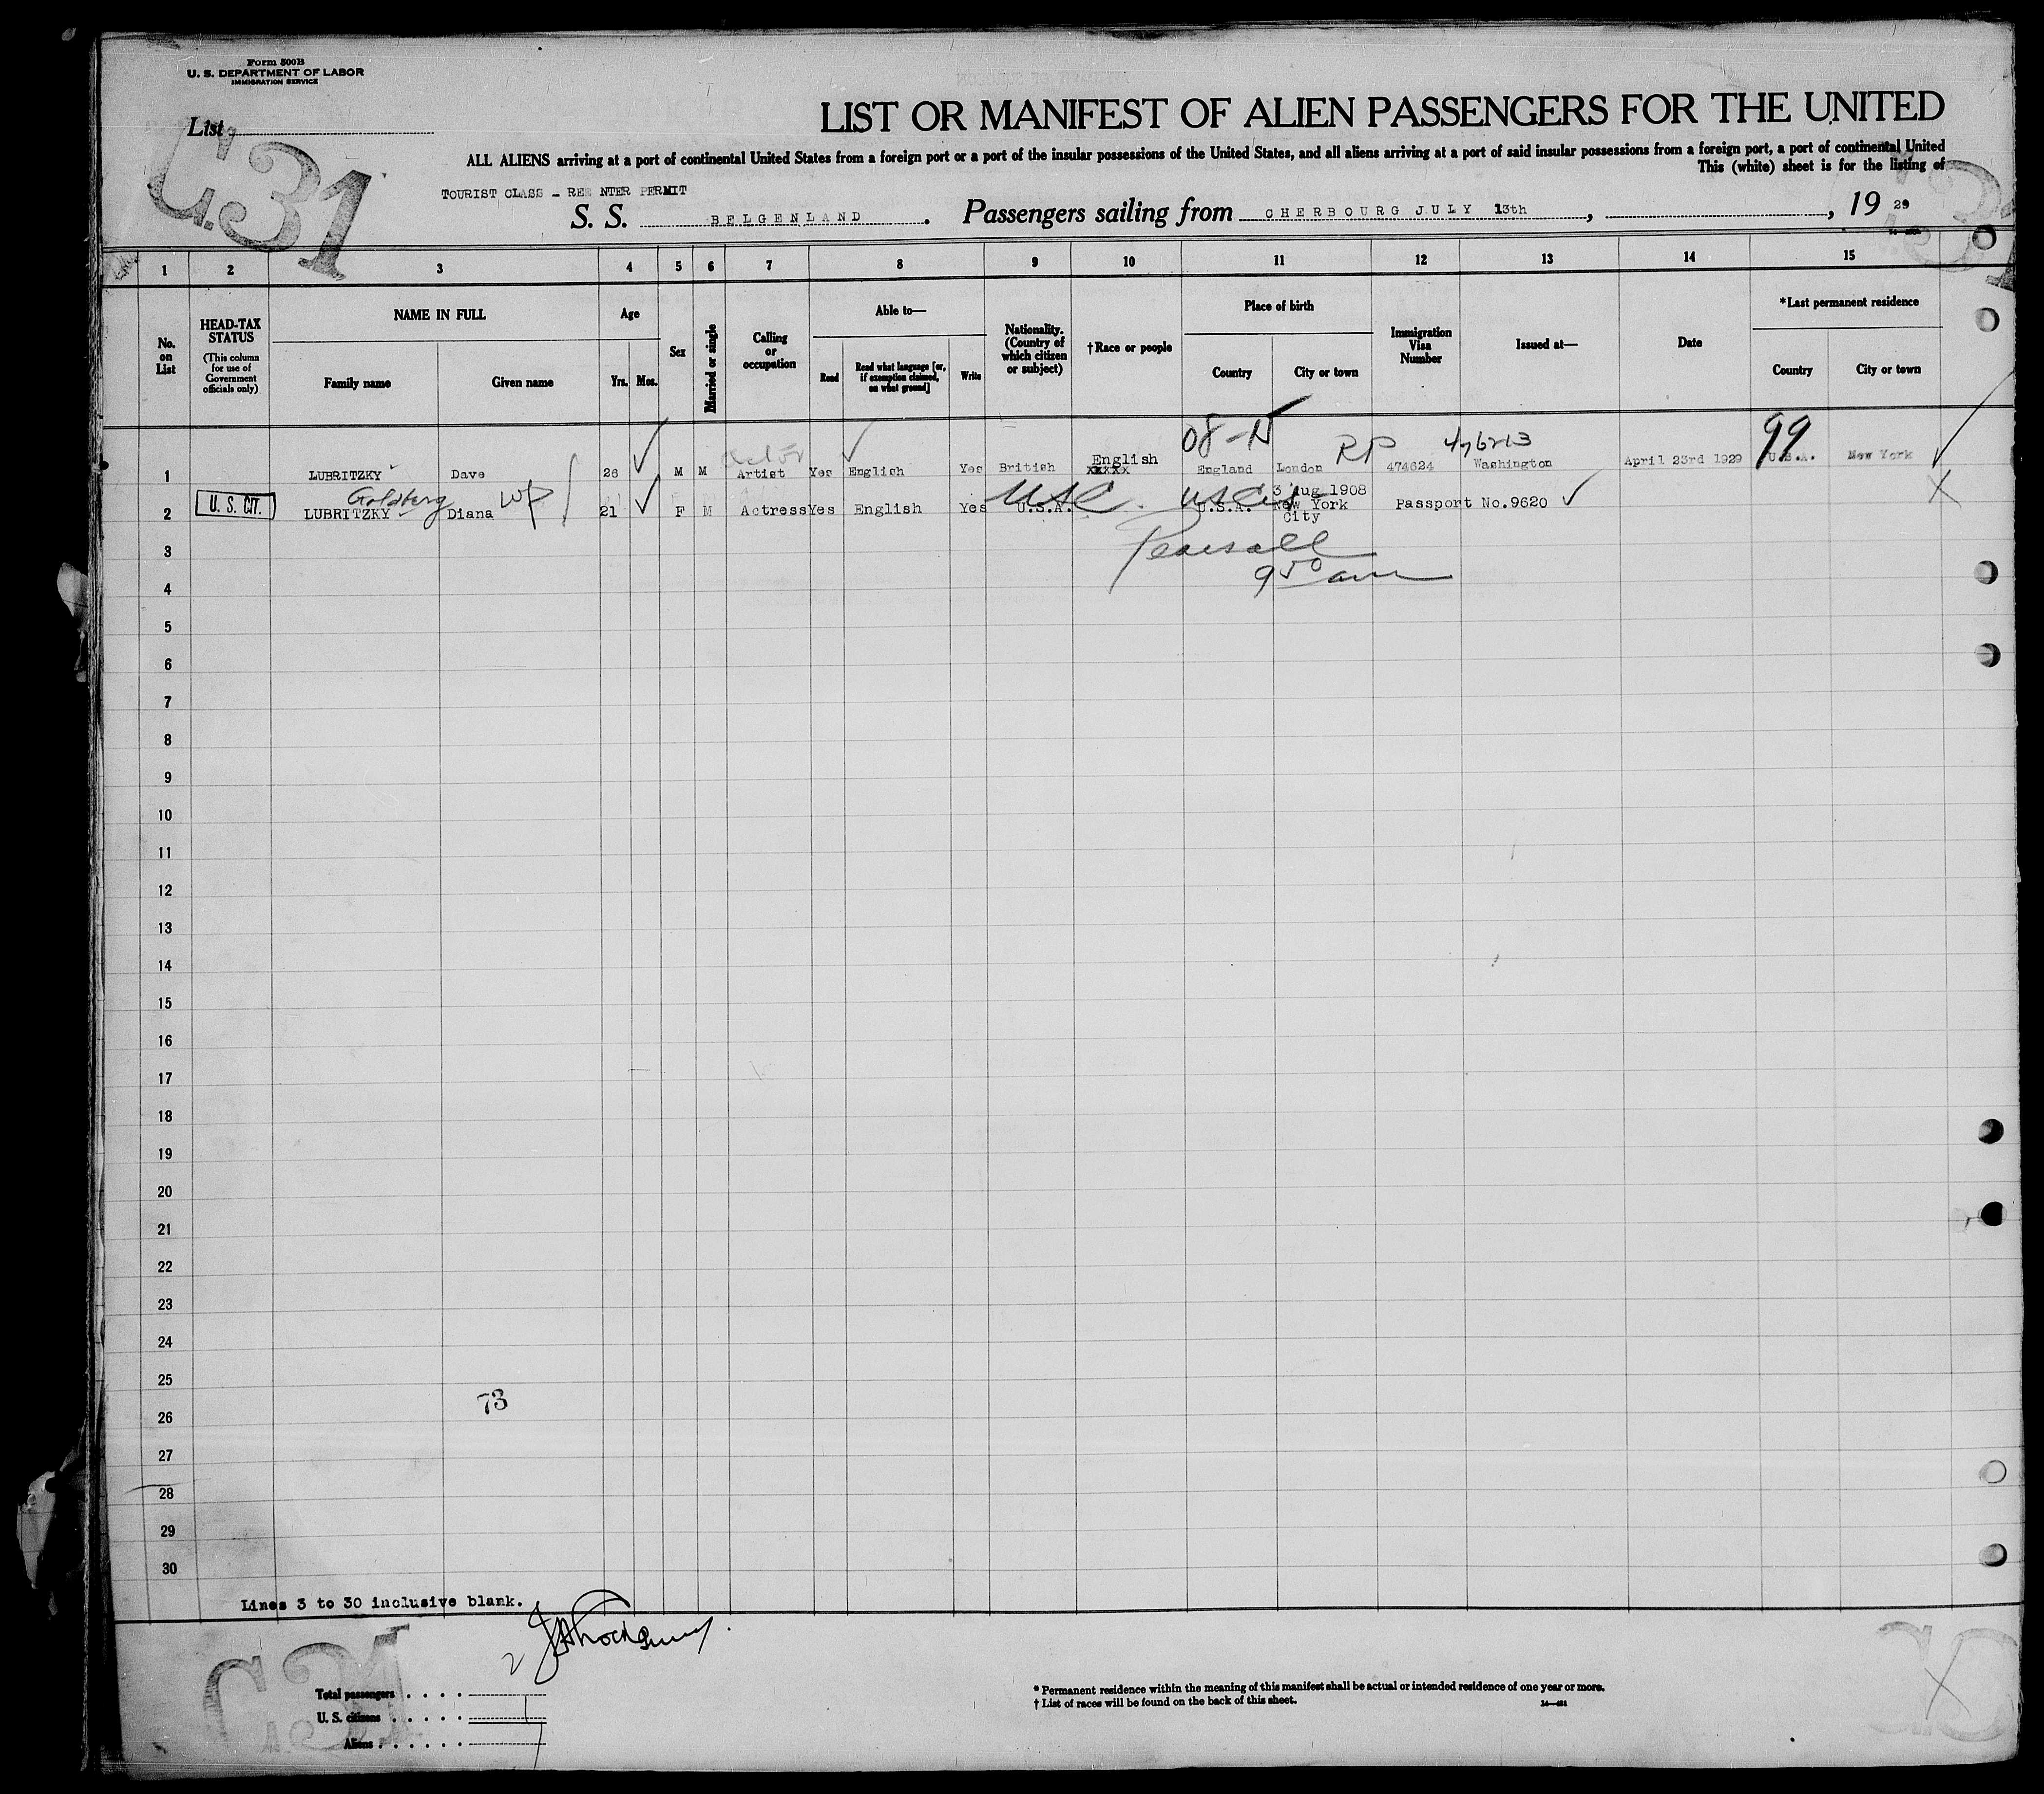 Form 500B
U. S. DEPARTMENT OF LABOR
IMMIGRATION SERVICE
List
C.31
LIST OR MANIFEST OF ALIEN PASSENGERS FOR THE UNITED
ALL ALIENS arriving at a port of continental United States from a foreign port or a port of the insular possessions of the United States, and all aliens arriving at a port of said insular possessions from a foreign port, a port of continental United
This (white) sheet is for the listing of
TOURIST CLASS - REE NTER PERMIT
S. S. BELGENLAND. Passengers sailing from CHERBOURG JULY 13th, , 19 29
1 2 3 4 5 6 7 8 9 10 11 12 13 14 15
No. on List
HEAD-TAX STATUS (This column for use of Government officials only)
NAME IN FULL Family name Given name
Age Yrs. Mos.
Sex
Married or single
Calling or occupation
Able to— Read Read what language [or, if exemption claimed, on what ground] Write
Nationality. (Country of which citizen or subject)
†Race or people
Place of birth Country City or town
Immigration Visa Number
Issued at—
Date
*Last permanent residence Country City or town
08-N RP 99
Actor English
1 LUBRITZKY Dave 26 M M Artist Yes English Yes British xxxxx England London 474624 Washington April 23rd 1929 U.S.A. New York
Goldberg WP USC. 3 Aug 1908
2 U. S. CIT. LUBRITZKY Diana 21 F M Actress Yes English Yes U.S.A. U.S.A. New York City Passport No.9620
3 Pearsall
4 9 50 am
5
6
7
8
9
10
11
12
13
14
15
16
17
18
19
20
21
22
23
24
25
73
26
27
28
29
30
Lines 3 to 30 inclusive blank.
2
Total passengers
U. S. citizens 1
Aliens 1
* Permanent residence within the meaning of this manifest shall be actual or intended residence of one year or more.
† List of races will be found on the back of this sheet.
14—481